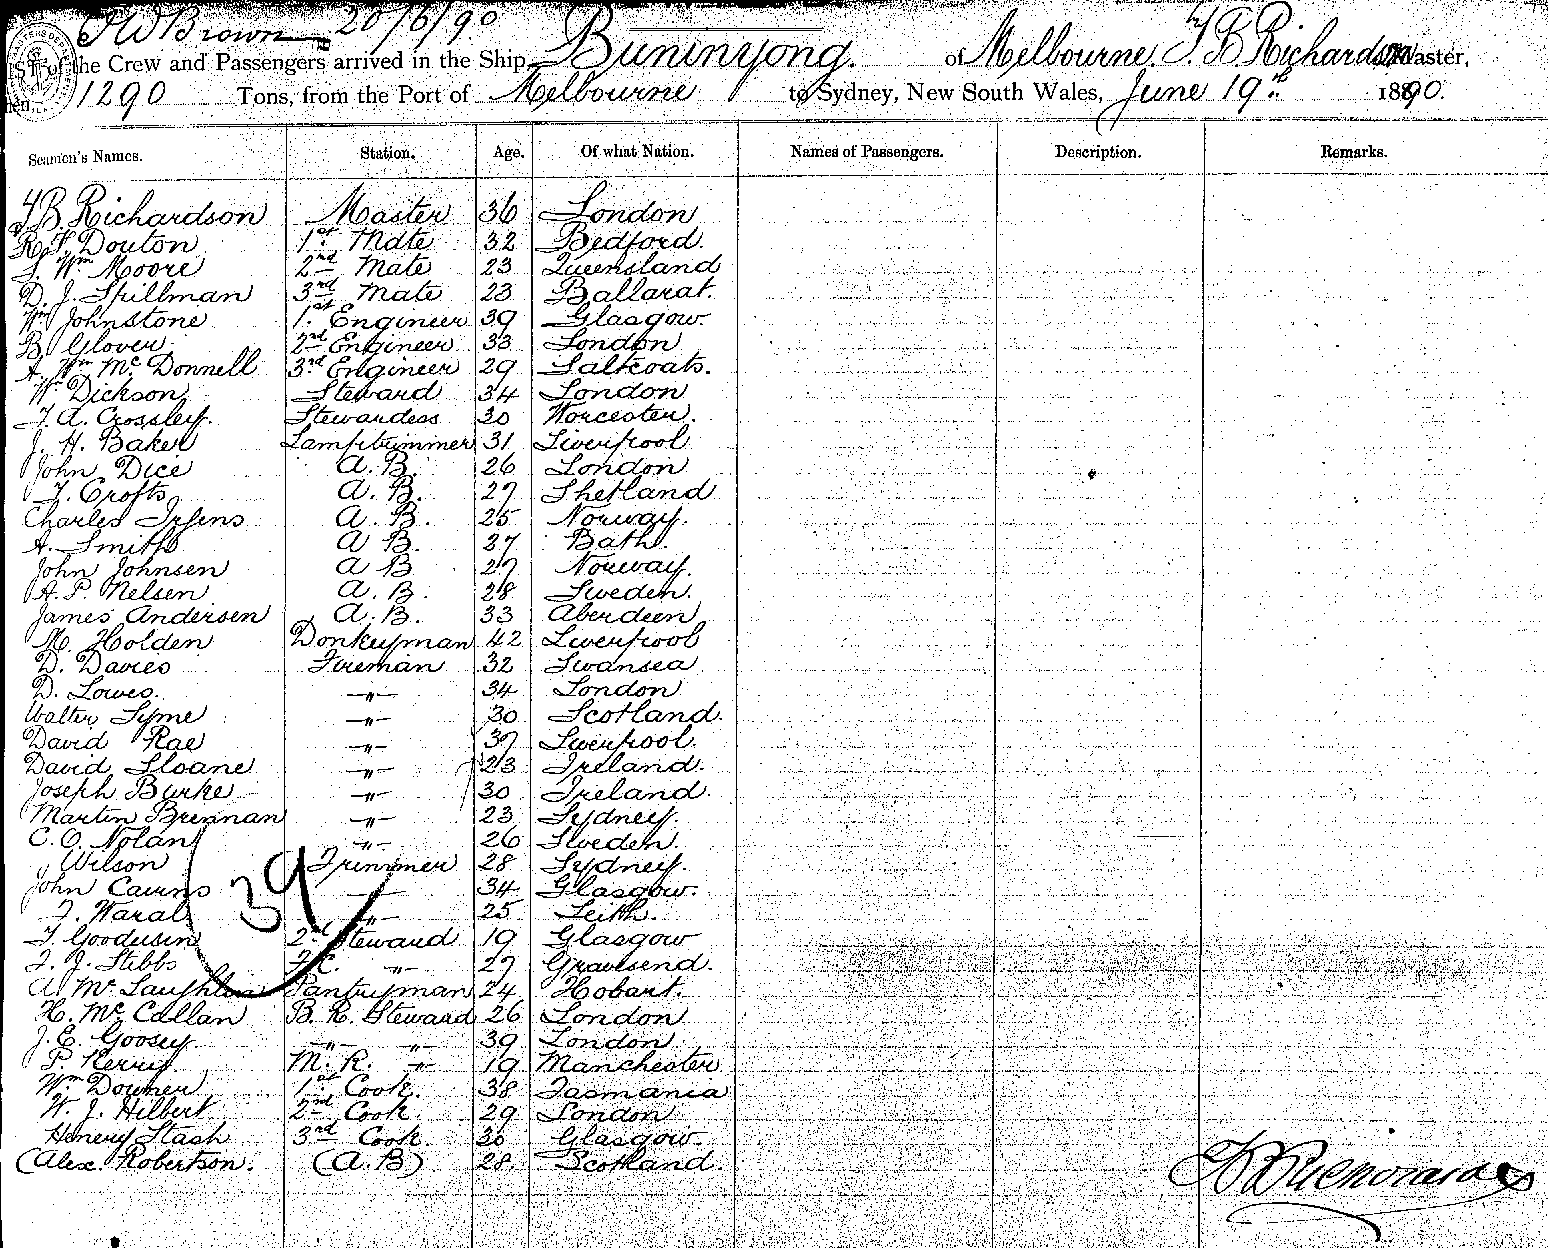 H W Brown 20/6/90
LIST of the Crew and Passengers arrived in the Ship, Buninyong. of Melbourne. F B Richardson Master,
1290 Tons, from the Port of Melbourne to Sydney, New South Wales, June 19th 1890.
Seamen's Names. Station. Age. Of what Nation. Names of Passengers. Description. Remarks.
F B Richardson Master 36 London
R. F. Douton 1st Mate 32 Bedford.
Wm Moore 2nd Mate 23 Queensland
D. J. Spillman 3rd Mate 23 Ballarat.
Wm Johnstone 1st Engineer 39 Glasgow.
B. Glover 2nd Engineer 33 London
A. Wm Mc Donnell 3rd Engineer 29 Saltcoats.
Wm Dickson Steward 34 London
F. A. Crossley. Stewardess 30 Worcester.
J. H. Baker Lamptrimmer 31 Liverpool
John Dice A. B. 26 London
F. Crofts A. B. 27 Shetland
Charles Irgens A. B. 25 Norway.
A. Smith A B. 27 Bath.
John Johnsen A B 27 Norway.
A. P. Nelsen A. B. 28 Sweden.
James Andersen A. B. 33 Aberdeen
M. Holden Donkeyman 42 Liverpool
D. Davies Fireman 32 Swansea
D. Lowes. -"- 34 London
Walter Syme -"- 30 Scotland.
David Rae -"- 37 Liverpool.
David Sloane -"- 23 Ireland.
Joseph Burke -"- 30 Ireland.
Martin Brennan -"- 23 Sydney.
C. O. Nolan -"- 26 Sweden.
Wilson Trimmer 28 Sydney.
John Cairns 34 Glasgow.
39
F. Waral -"- 25 Leith.
F. Goodwin 2nd Steward 19 Glasgow
F. J. Stibbs F. C. -"- 27 Gravesend.
A Mc Laughlin Pantryman 24 Hobart.
H. Mc Callan B. R. Steward 26 London
J. E. Goosey -"- -"- 39 London
P. Kerry M. R. -"- 19 Manchester
Wm Downer 1st Cook. 38 Tasmania
W. J. Hilbert 2nd Cook. 29 London
Henery Stash 3rd Cook. 30 Glasgow.
(Alex. Robertson. (A. B) 28. Scotland.
F B Richardson